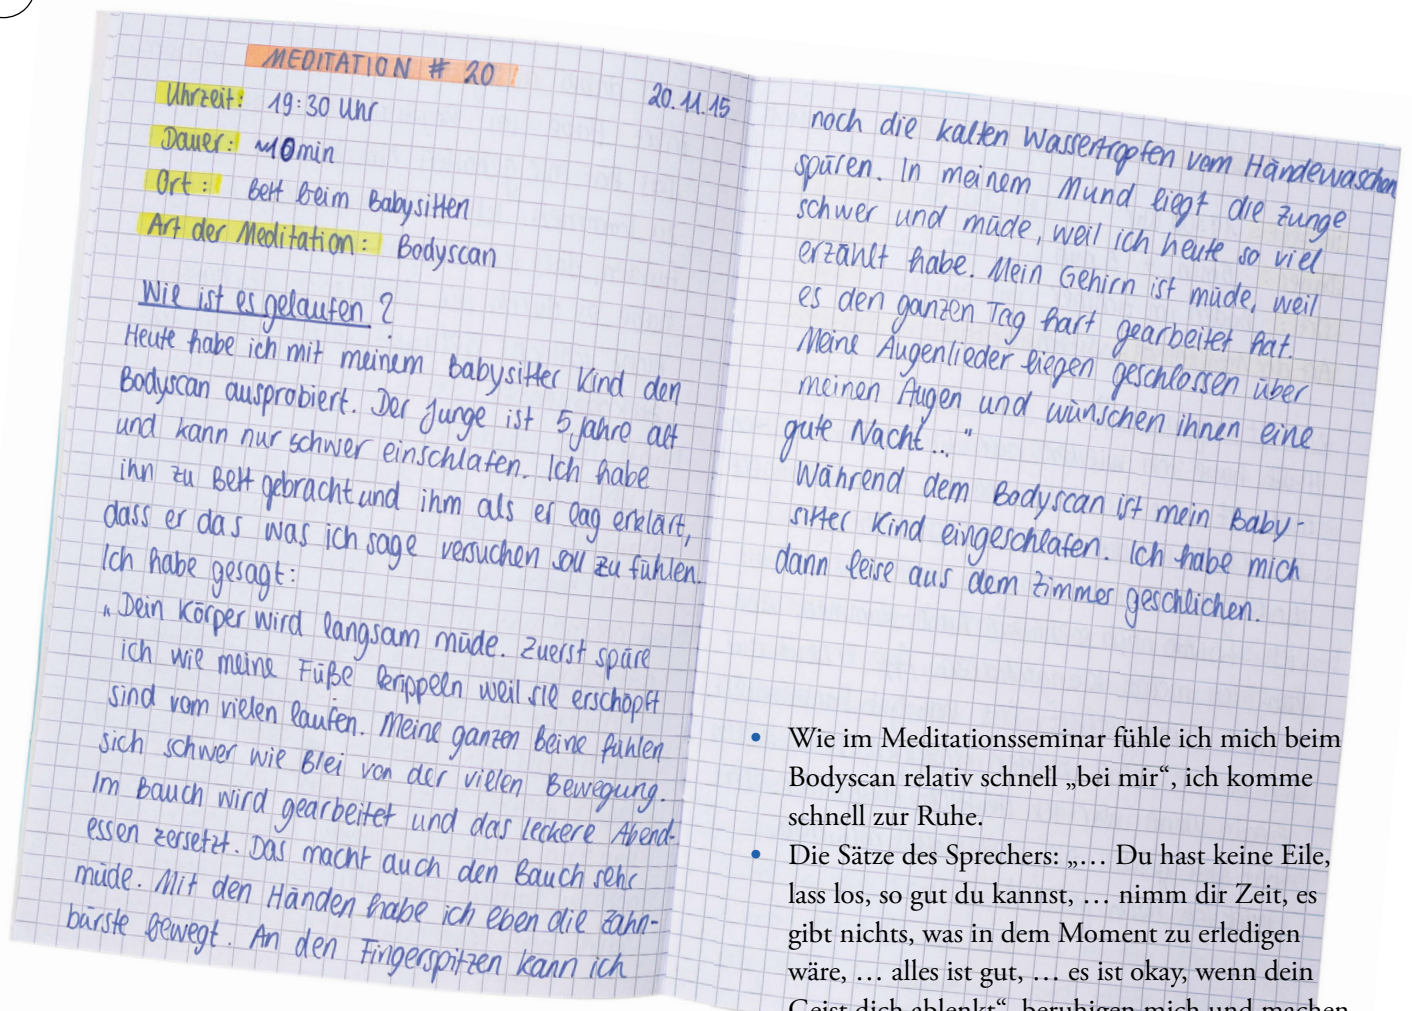 MEDITATION # 20
20.11.15
Uhrzeit: 19:30 Uhr
Dauer: ~10min
Ort: Bett beim Babysitten
Art der Meditation: Bodyscan
Wie ist es gelaufen?
Heute habe ich mit meinem Babysitter Kind den
Bodyscan ausprobiert. Der Junge ist 5 Jahre alt
und kann nur schwer einschlafen. Ich habe
ihn zu Bett gebracht und ihm als er lag erklärt,
dass er das was ich sage versuchen soll zu fühlen.
Ich habe gesagt:
„Dein Körper wird langsam müde. Zuerst spüre
ich wie meine Füße krippeln weil sie erschöpft
sind vom vielen laufen. Meine ganzen Beine fühlen
sich schwer wie Blei von der vielen Bewegung.
Im Bauch wird gearbeitet und das leckere Abend-
essen zersetzt. Das macht auch den Bauch sehr
müde. Mit den Händen habe ich eben die Zahn-
bürste bewegt. An den Fingerspitzen kann ich
noch die kalten Wassertropfen vom Händewaschen
spüren. In meinem Mund liegt die Zunge
schwer und müde, weil ich heute so viel
erzählt habe. Mein Gehirn ist müde, weil
es den ganzen Tag hart gearbeitet hat.
Meine Augenlieder liegen geschlossen über
meinen Augen und wünschen ihnen eine
gute Nacht..."
Während dem Bodyscan ist mein Baby-
sitter Kind eingeschlafen. Ich habe mich
dann leise aus dem Zimmer geschlichen.
• Wie im Meditationsseminar fühle ich mich beim
Bodyscan relativ schnell „bei mir“, ich komme
schnell zur Ruhe.
• Die Sätze des Sprechers: „… Du hast keine Eile,
lass los, so gut du kannst, … nimm dir Zeit, es
gibt nichts, was in dem Moment zu erledigen
wäre, … alles ist gut, … es ist okay, wenn dein
Geist dich ablenkt“, beruhigen mich und machen